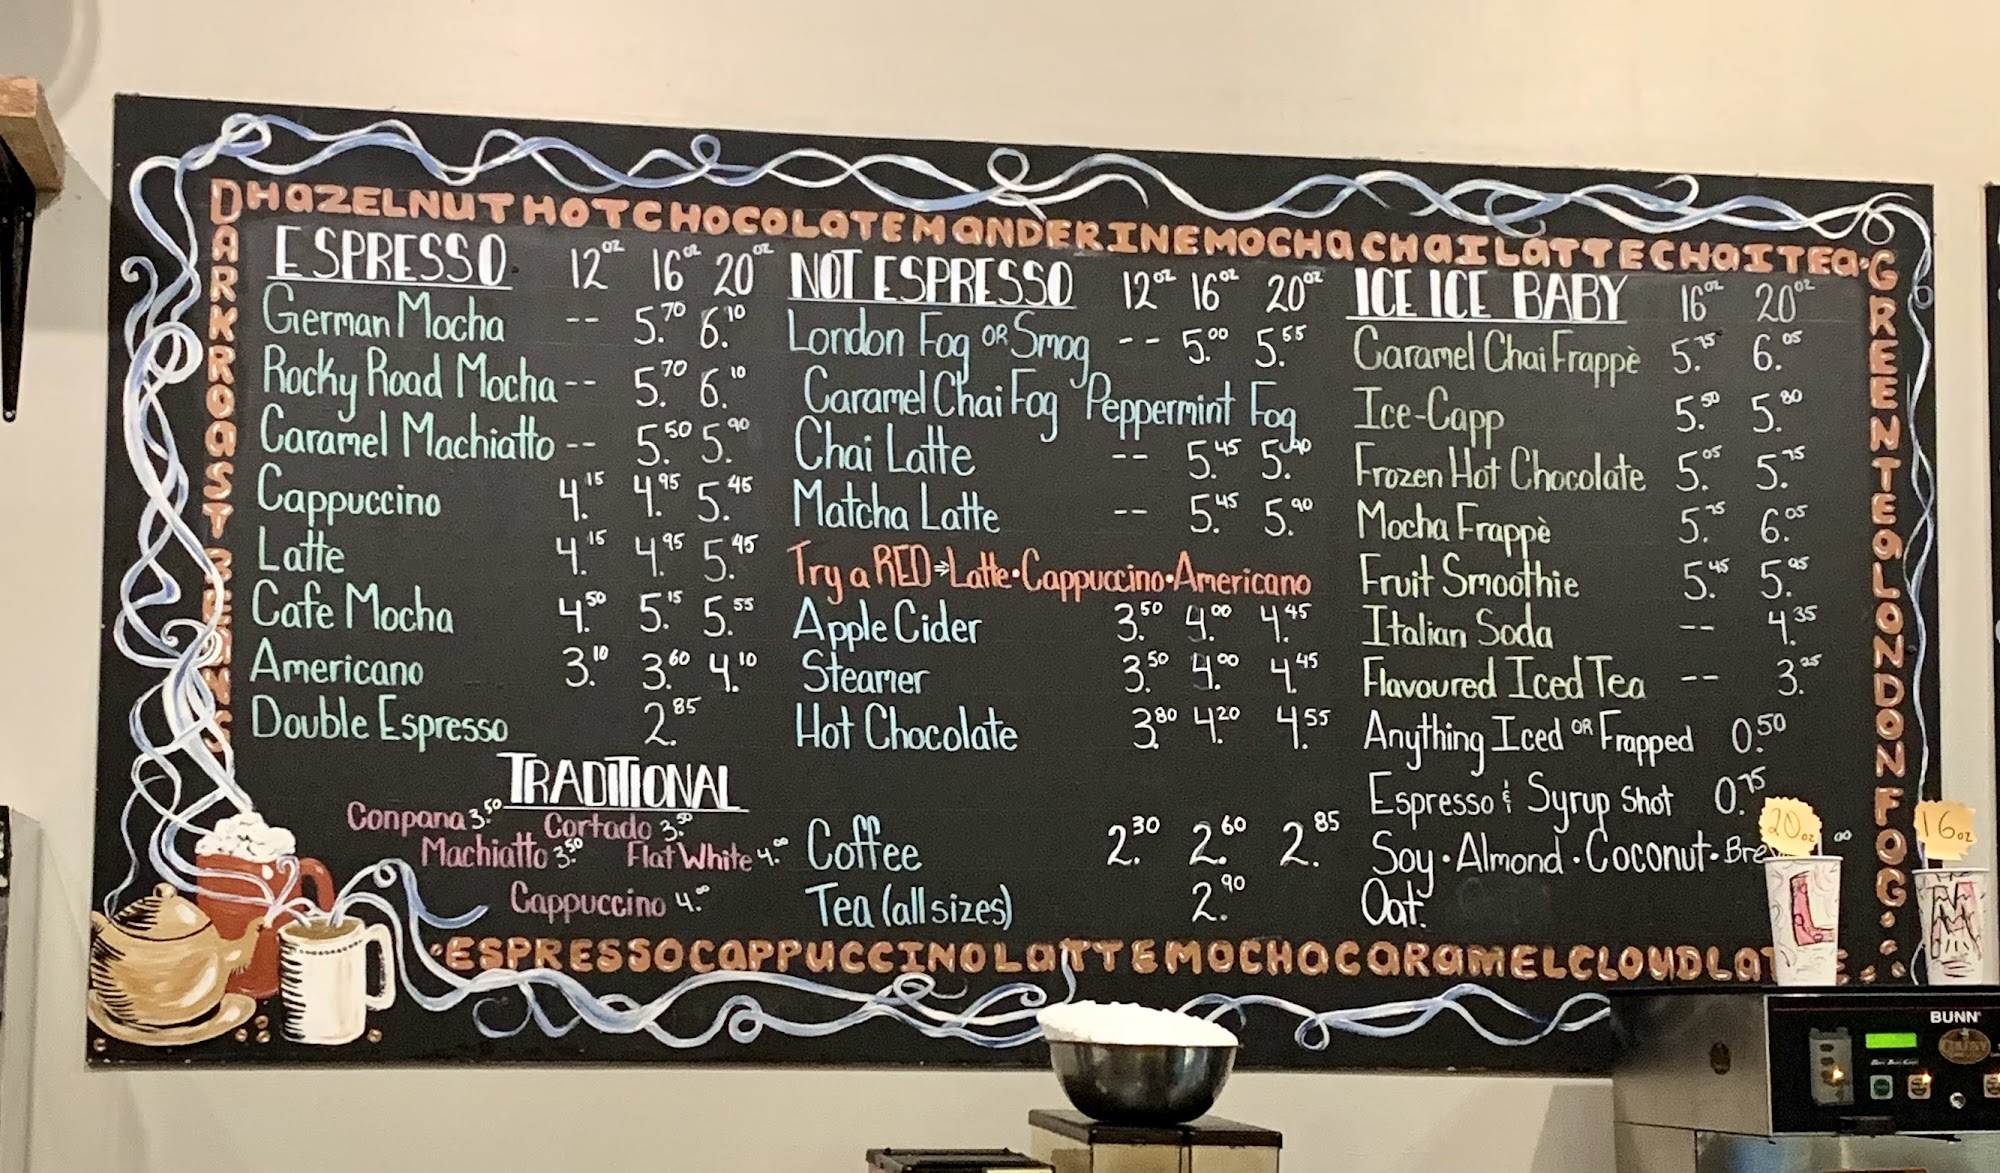 HAZELNUT HOT CHOCOLATE MANDERINE MOCHA CHAI LATTE CHAI TEA•
DARK ROAST BEANS
ESPRESSO 12oz 16oz 20oz
German Mocha -- 5.70 6.10
Rocky Road Mocha -- 5.70 6.10
Caramel Machiatto -- 5.50 5.90
Cappuccino 4.15 4.95 5.45
Latte 4.15 4.95 5.45
Cafe Mocha 4.50 5.15 5.55
Americano 3.10 3.60 4.10
Double Espresso 2.85
TRADITIONAL
Conpana 3.50 Cortado 3.50
Machiatto 3.50 Flat White 4.00
Cappuccino 4.00
NOT ESPRESSO 12oz 16oz 20oz
London Fog OR Smog -- 5.00 5.55
Caramel Chai Fog Peppermint Fog
Chai Latte -- 5.45 5.90
Matcha Latte -- 5.45 5.90
Try a RED ⇒ Latte • Cappuccino • Americano
Apple Cider 3.50 4.00 4.45
Steamer 3.50 4.00 4.45
Hot Chocolate 3.80 4.20 4.55
Coffee 2.30 2.60 2.85
Tea (all sizes) 2.90
ICE ICE BABY 16oz 20oz
Caramel Chai Frappè 5.75 6.05
Ice-Capp 5.50 5.80
Frozen Hot Chocolate 5.05 5.75
Mocha Frappè 5.75 6.05
Fruit Smoothie 5.45 5.95
Italian Soda -- 4.35
Flavoured Iced Tea -- 3.25
Anything Iced OR Frapped 0.50
Espresso & Syrup Shot 0.75
Soy • Almond • Coconut •
Oat
GREEN TEA LONDON FOG•
•ESPRESSO CAPPUCCINO LATTE MOCHA CARAMEL CLOUD LATTE
20oz
L
16oz
M
BUNN